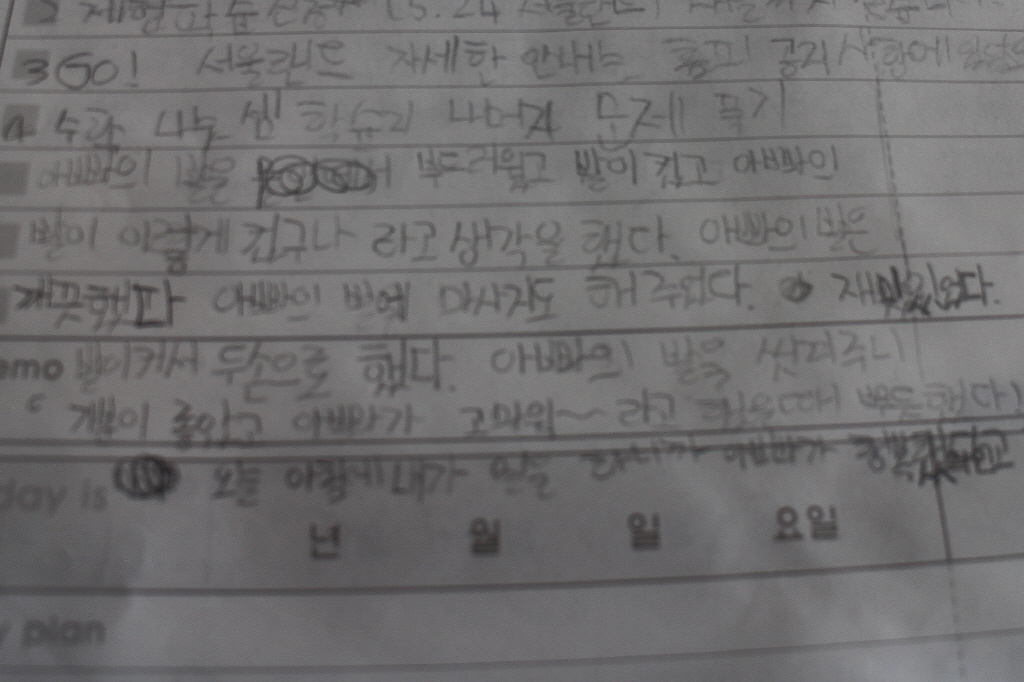 2 체험학습신청서 (5.24 서울랜드)
3 GO! 서울랜드 자세한 안내는 홈피 공지사항에
4 수학 나누셈 학습지 나머지 문제 풀기
아빠의 발은 부드러웠고 발이 컸고 아빠의
발이 이렇게 컸구나 라고 생각을 했다. 아빠의 발은
깨끗했다 아빠의 발에 마사지도 해 주었다. 재미있었다.
emo 발이커서 두손으로 했다. 아빠의 발을 씻겨주니
기분이 좋았고 아빠가 고마워~ 라고 했을때 뿌듯했다
day is 오늘 이렇게 내가 아빠가
년 월 일 요일
plan